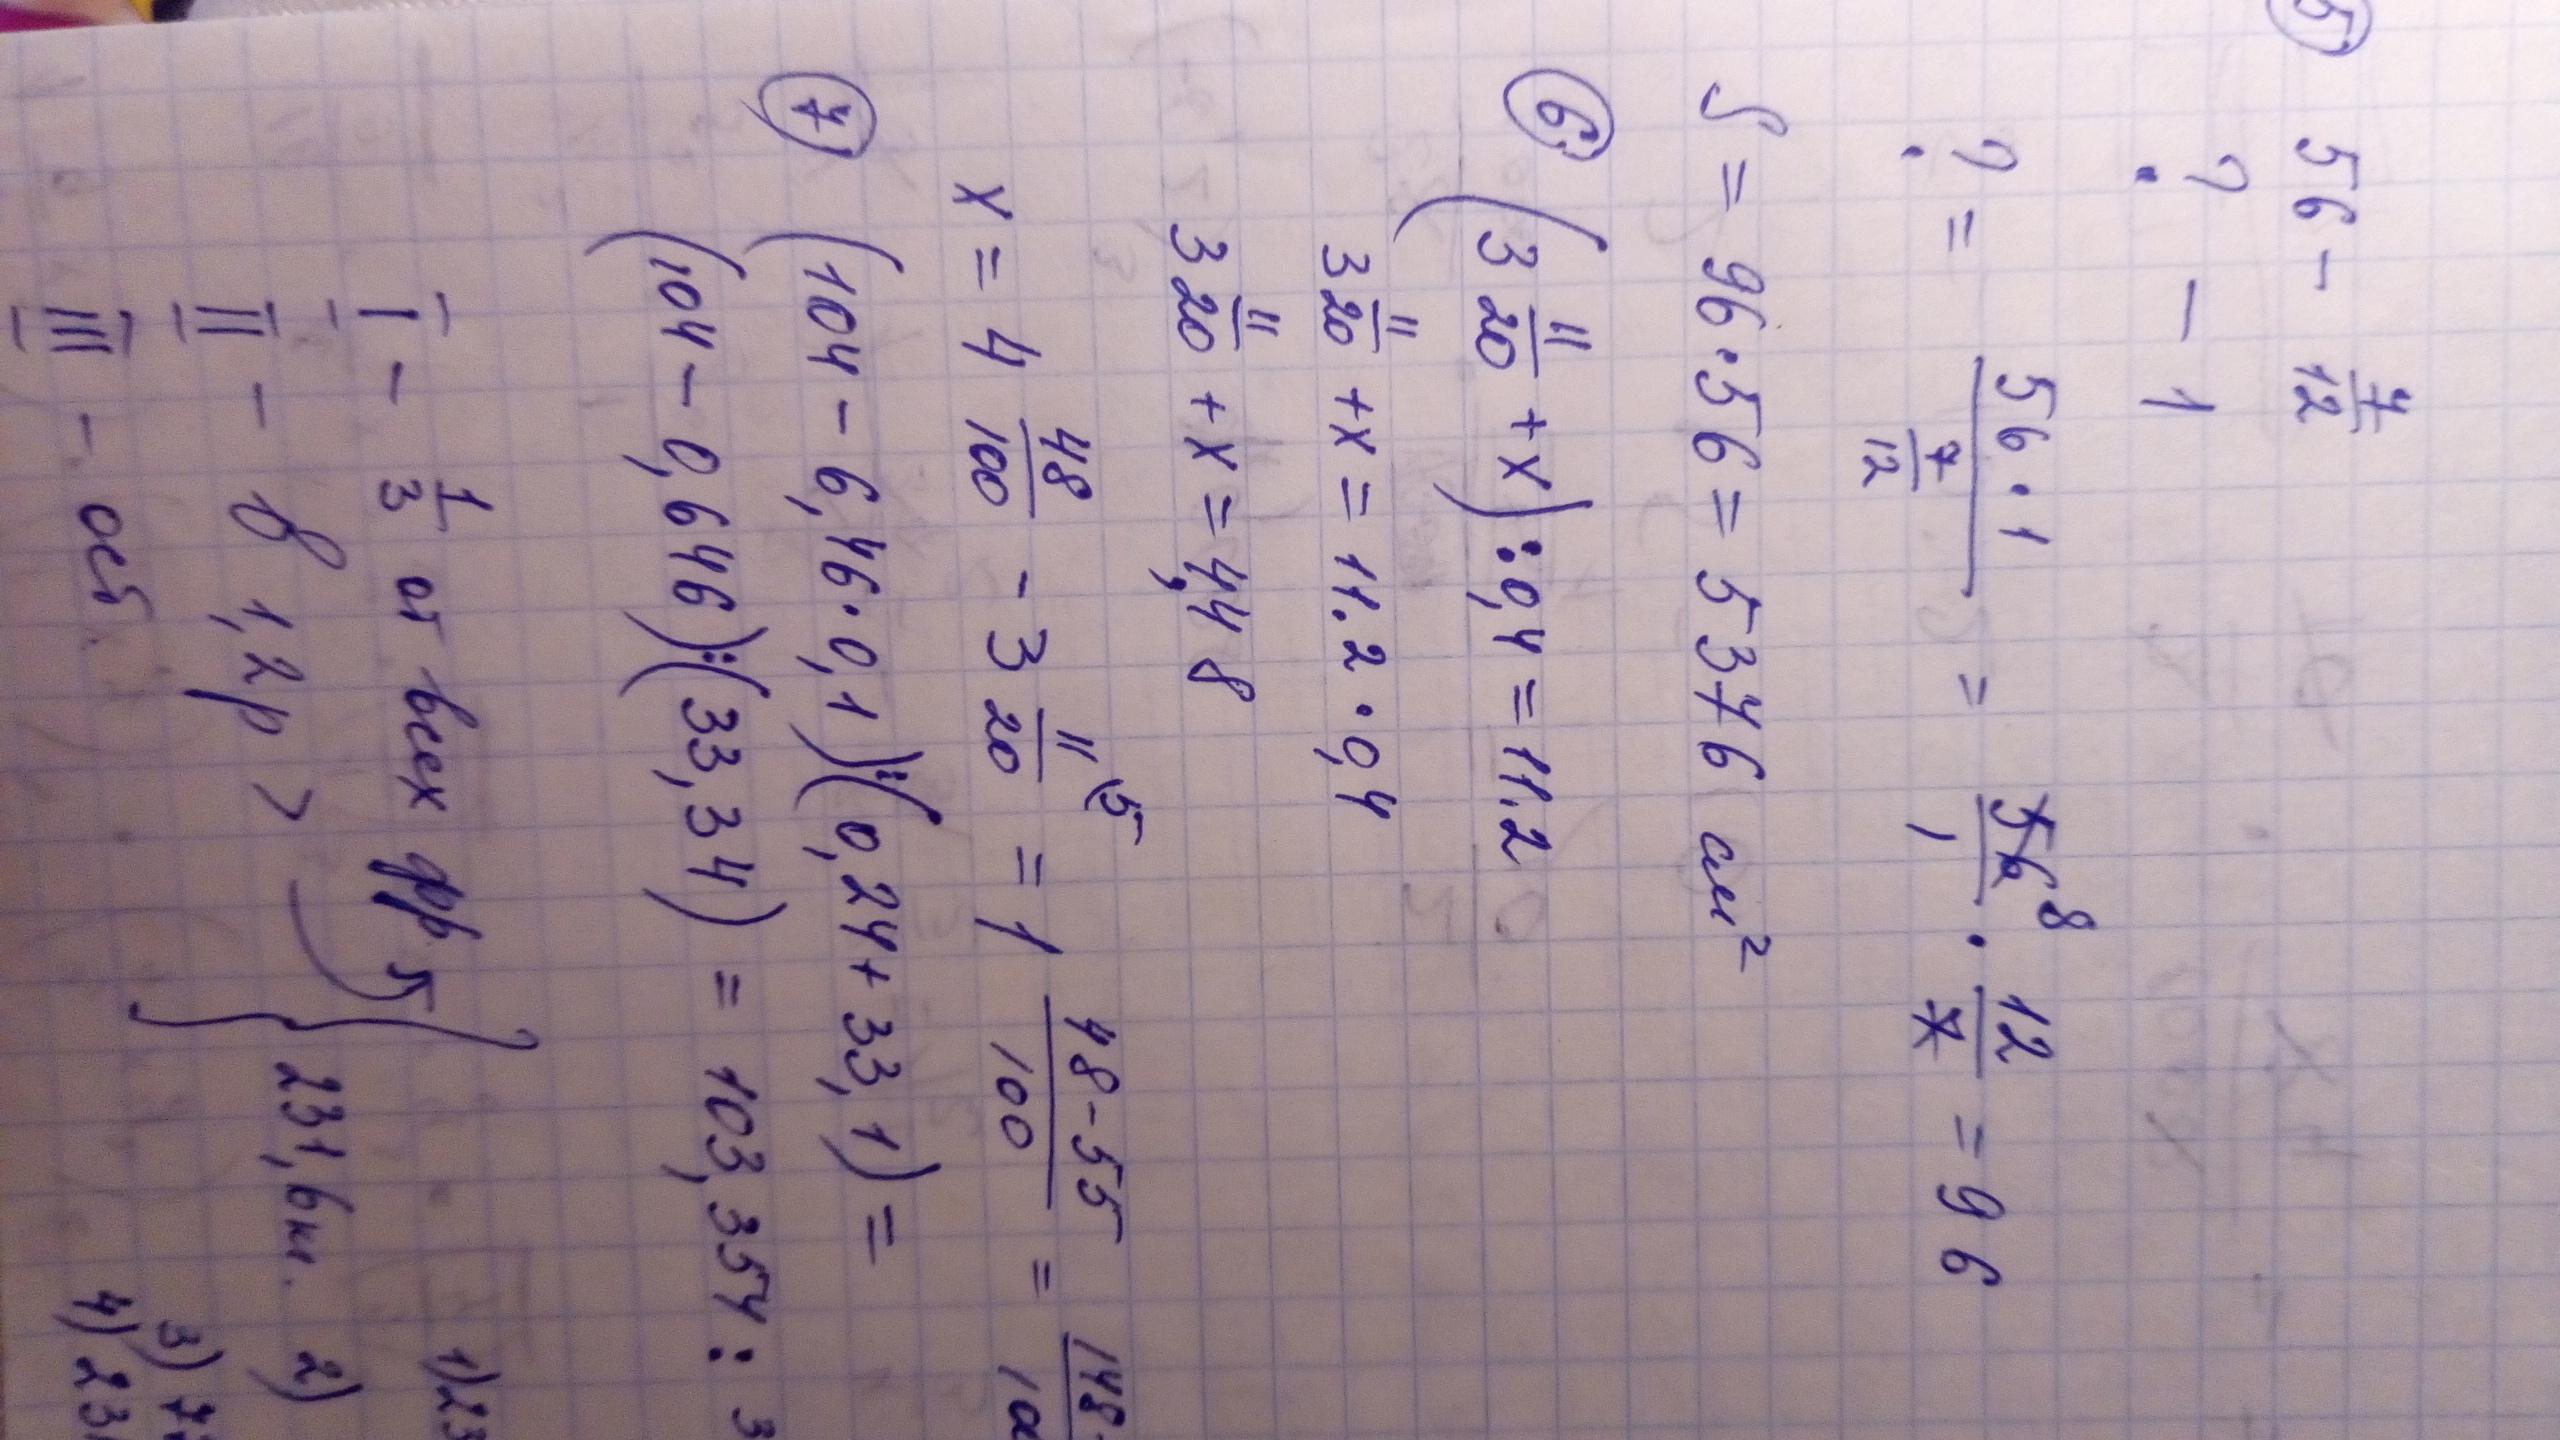 5 56 - 7/12
? - 1
? = 56·1 / 7/12 = 56 8/1 · 12/7 = 96
S = 96·56 = 5376 см²
6 (3 11/20 + x) : 0,4 = 11.2
3 11/20 + x = 11.2 · 0,4
3 11/20 + x = 4,48
x = 4 48/100 - 3 11/20 (5 = 1 48-55/100 =
7 (104 - 6,46·0,1):(0,24+33,1) =
(104 - 0,646):(33,34) = 103,354 : 3
I - 1/3 от всех фр
II - в 1,2р >
III - ост.
} 231,6 кг.
1) 23
2)
3) 7
4) 23